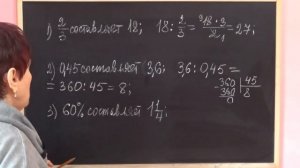 1) 2/3 составляет 18; 18 : 2/3 = 18 · 3 / 2 = 27;
2) 0,45 составляет 3,6; 3,6 : 0,45 =
= 360 : 45 = 8;
360 | 45
360 | 8
0
3) 60% составляет 1 1/4;